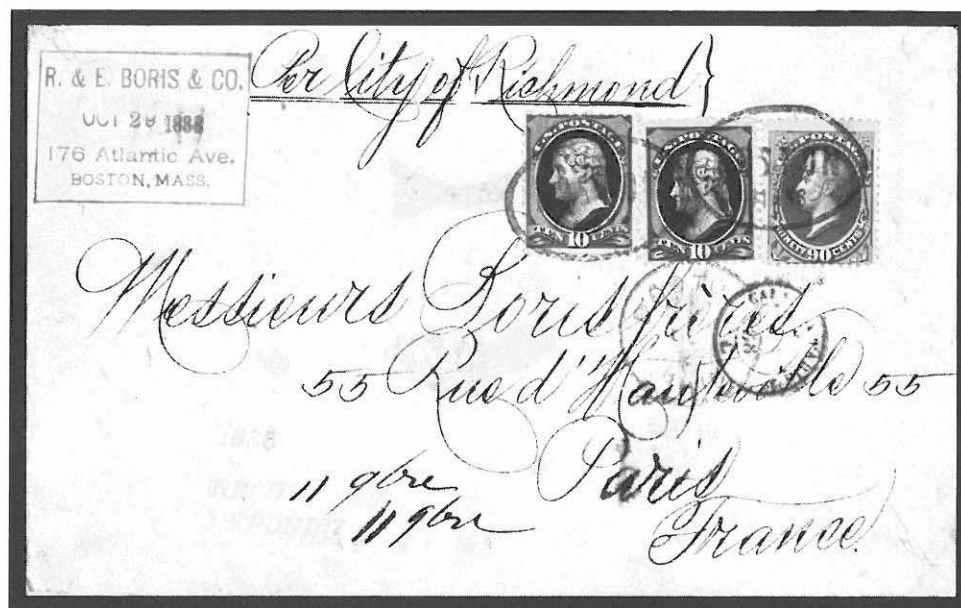 R. & E. BORIS & CO.
OCT 29 1888
176 Atlantic Ave.
BOSTON, MASS.
Per City of Richmond}
U.S. POSTAGE
TEN 10 CENTS
U.S. POSTAGE
TEN 10 CENTS
U.S. POSTAGE
NINETY 90 CENTS
Messieurs Boris frères
55 Rue d'Hauteville 55
Paris
France
11 9bre
11 9bre